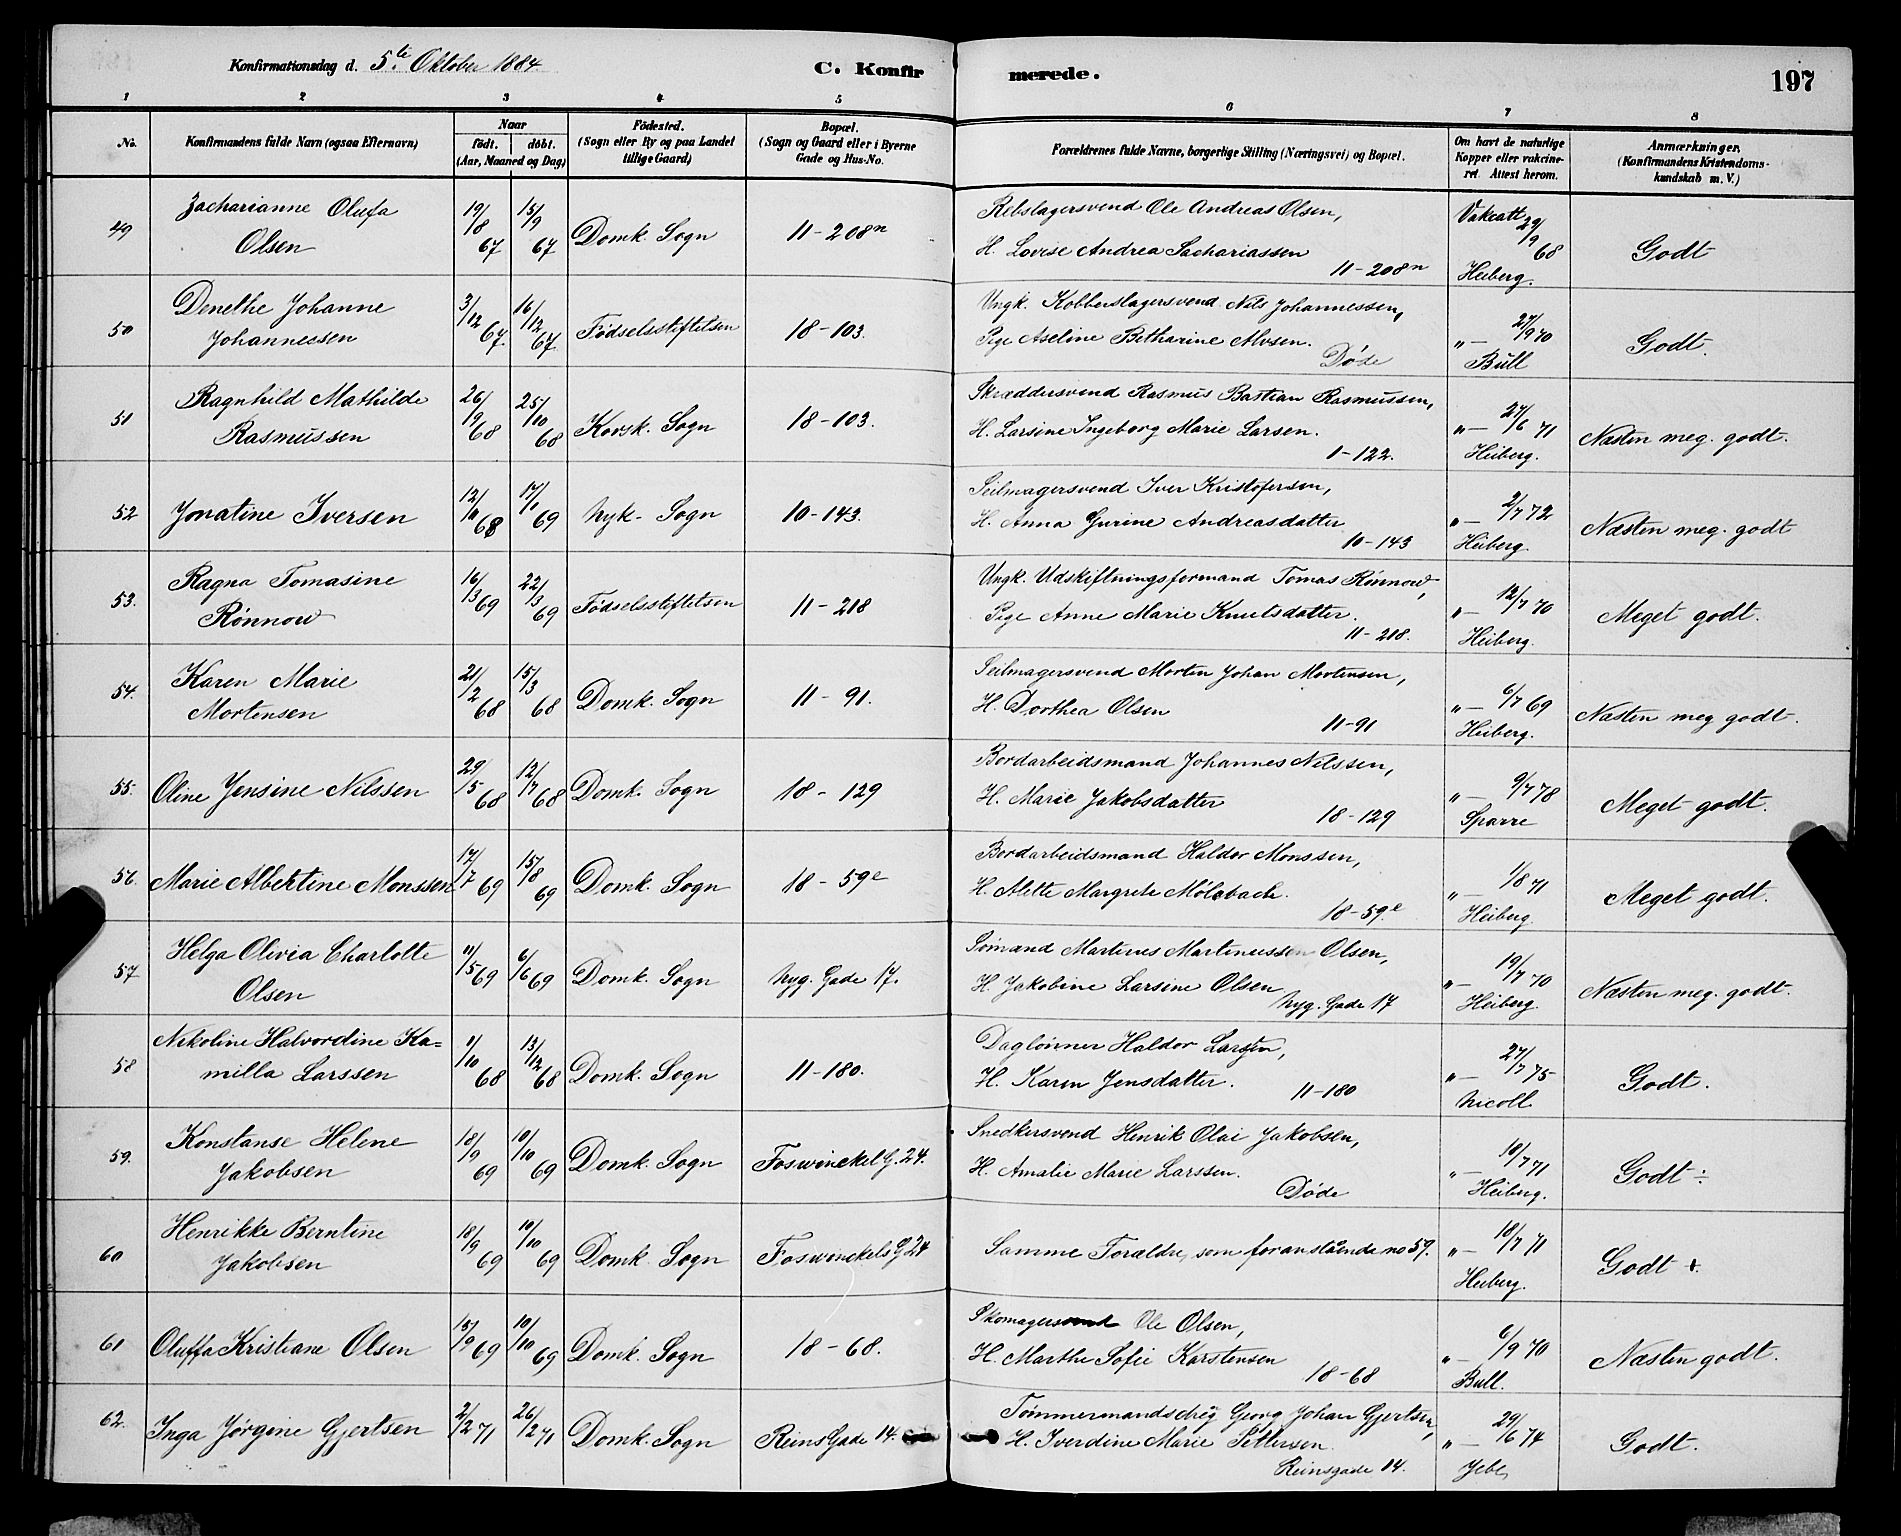 Konfirmationsdag d. 5te Oktober 1884. C. Konfirmerede. 197
1 2 3 4 5 6 7 8
No. Konfirmandens fulde Navn (ogsaa Efternavn) Naar født. døbt. (Aar, Maaned og Dag) Fødested. (Sogn eller By og paa Landet tillige Gaard) Bopæl. (Sogn og Gaard eller i Byerne Gade og Hus-No. Forældrenes fulde Navne, borgerlige Stilling (Næringsvei) og Bopæl. Om havt de naturlige Kopper eller vakcineret. Attest herom. Anmærkninger. (Konfirmandens Kristendomskundskab m. V.)
49 Zacharianne Olufa Olsen 19/8 67 15/9 67 Domk. Sogn 11-208n Rebslagersvend Ole Andreas Olsen, Vakcatt 29/9 68
H. Lovise Andrea Sachariassen 11-208n Heiberg. Godt
50 Denethe Johanne Johannessen 3/12 67. 16/12 67 Fødselsstiftelsen 18-103. Ungk. Kobberslagersvend Nils Johannessen,
Pige Aseline Betharine Alvsen. Døde "— 27/9 70 Bull Godt.
51 Ragnhild Mathilde Rasmussen 26/9 68 25/10 68 Korsk. Sogn 18-103. Skræddersvend Rasmus Bastian Rasmussen,
H. Larsine Ingeborg Marie Larsen. 1-122. "— 27/6 71 Heiberg. Næsten meg. godt.
52 Jonatine Iversen 12/10 68 17/1 69 Nyk. Sogn 10-143. Seilmagersvend Iver Kristofersen,
H. Anna Gurine Andreasdatter 10-143 "— 2/7 72 Heiberg. Næsten meg. godt
53. Ragna Tomasine Rønnow 16/3 69 22/3 69 Fødselsstiftelsen 11-218 Ungk. Udskiftningsformand Tomas Rønnow,
Pige Anne Marie Knutsdatter. 11-218. "— 12/7 70 Heiberg. Meget godt.
54. Karen Marie Mortensen 21/2 68 15/3 68 Domk. Sogn 11-91. Seilmagersvend Morten Johan Mortensen,
H. Dorthea Olsen 11-91 "— 6/7 69 Heiberg. Næsten meg godt.
55. Oline Jensine Nilssen 29/5 68 12/7 68 Domk. Sogn 18-129 Bordarbeidsmand Johannes Nilssen,
H. Marie Jakobsdatter 18-129 "— 9/7 78 Sparre Meget godt.
56. Marie Albertine Monssen 17/7 69 15/8 69 Domk. Sogn 18-59e Bordarbeidsmand Haldor Monssen,
H. Alette Margrete 18-59.e "— 1/8 71 Heiberg. Meget godt.
57 Helga Olivia Charlotte Olsen 11/5 69 6/6 69 Domk. Sogn Nyg. Gade 17. Sømand Martinus Martinussen Olsen,
H. Jakobine Larsine Olsen Nyg. Gade 17 "— 19/7 70 Heiberg. Næsten meg. godt.
58 Nikoline Halvordine Kamilla Larssen 11/10 68 13/12 68 Domk. Sogn 11-180. Dagløinner Haldor Larsen,
H. Karen Jensdatter. 11-180 "— 27/7 75 Nicoll Godt.
59. Konstanse Helene Jakobsen 18/9 69 10/10 69 Domk. Sogn Foswinckel G. 24. Snedkersvend Henrik Olai Jakobsen,
H. Amalie Marie Larssen. Døde "— 10/7 71 Heiberg. Godt ÷
60 Henrikke Berntine Jakobsen 18/9 69 10/10 69 Domk. Sogn Foswinckels G 24 Samme Forældre, som foranstående no 59. "— 10/7 71 Heiberg. Godt +.
61 Oluffa Kristiane Olsen 15/9 69 10/10 69 Domk. Sogn 18-68. Skomagersvend Ole Olsen,
H. Marthe Sofie Karstensen 18-68 "— 6/9 70 Bull. Næsten godt.
62. Inga Jørgine Gjertsen 2/2 71 26/2 71 Domk. Sogn Reins Gade 14. Tømmermandsdrg Georg Johan Gjertsen,
H. Iverdine Marie Pettersen Reinsgade 14. "— 29/6 74 Godt.